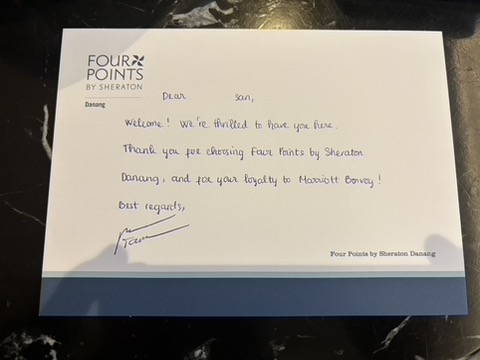 FOUR
POINTS
BY SHERATON
Danang
Dear san,
Welcome! We're thrilled to have you here.
Thank you for choosing Four Points by Sheraton
Danang, and for your loyalty to Marriott Bonvoy!
Best regards,
Four Points by Sheraton Danang